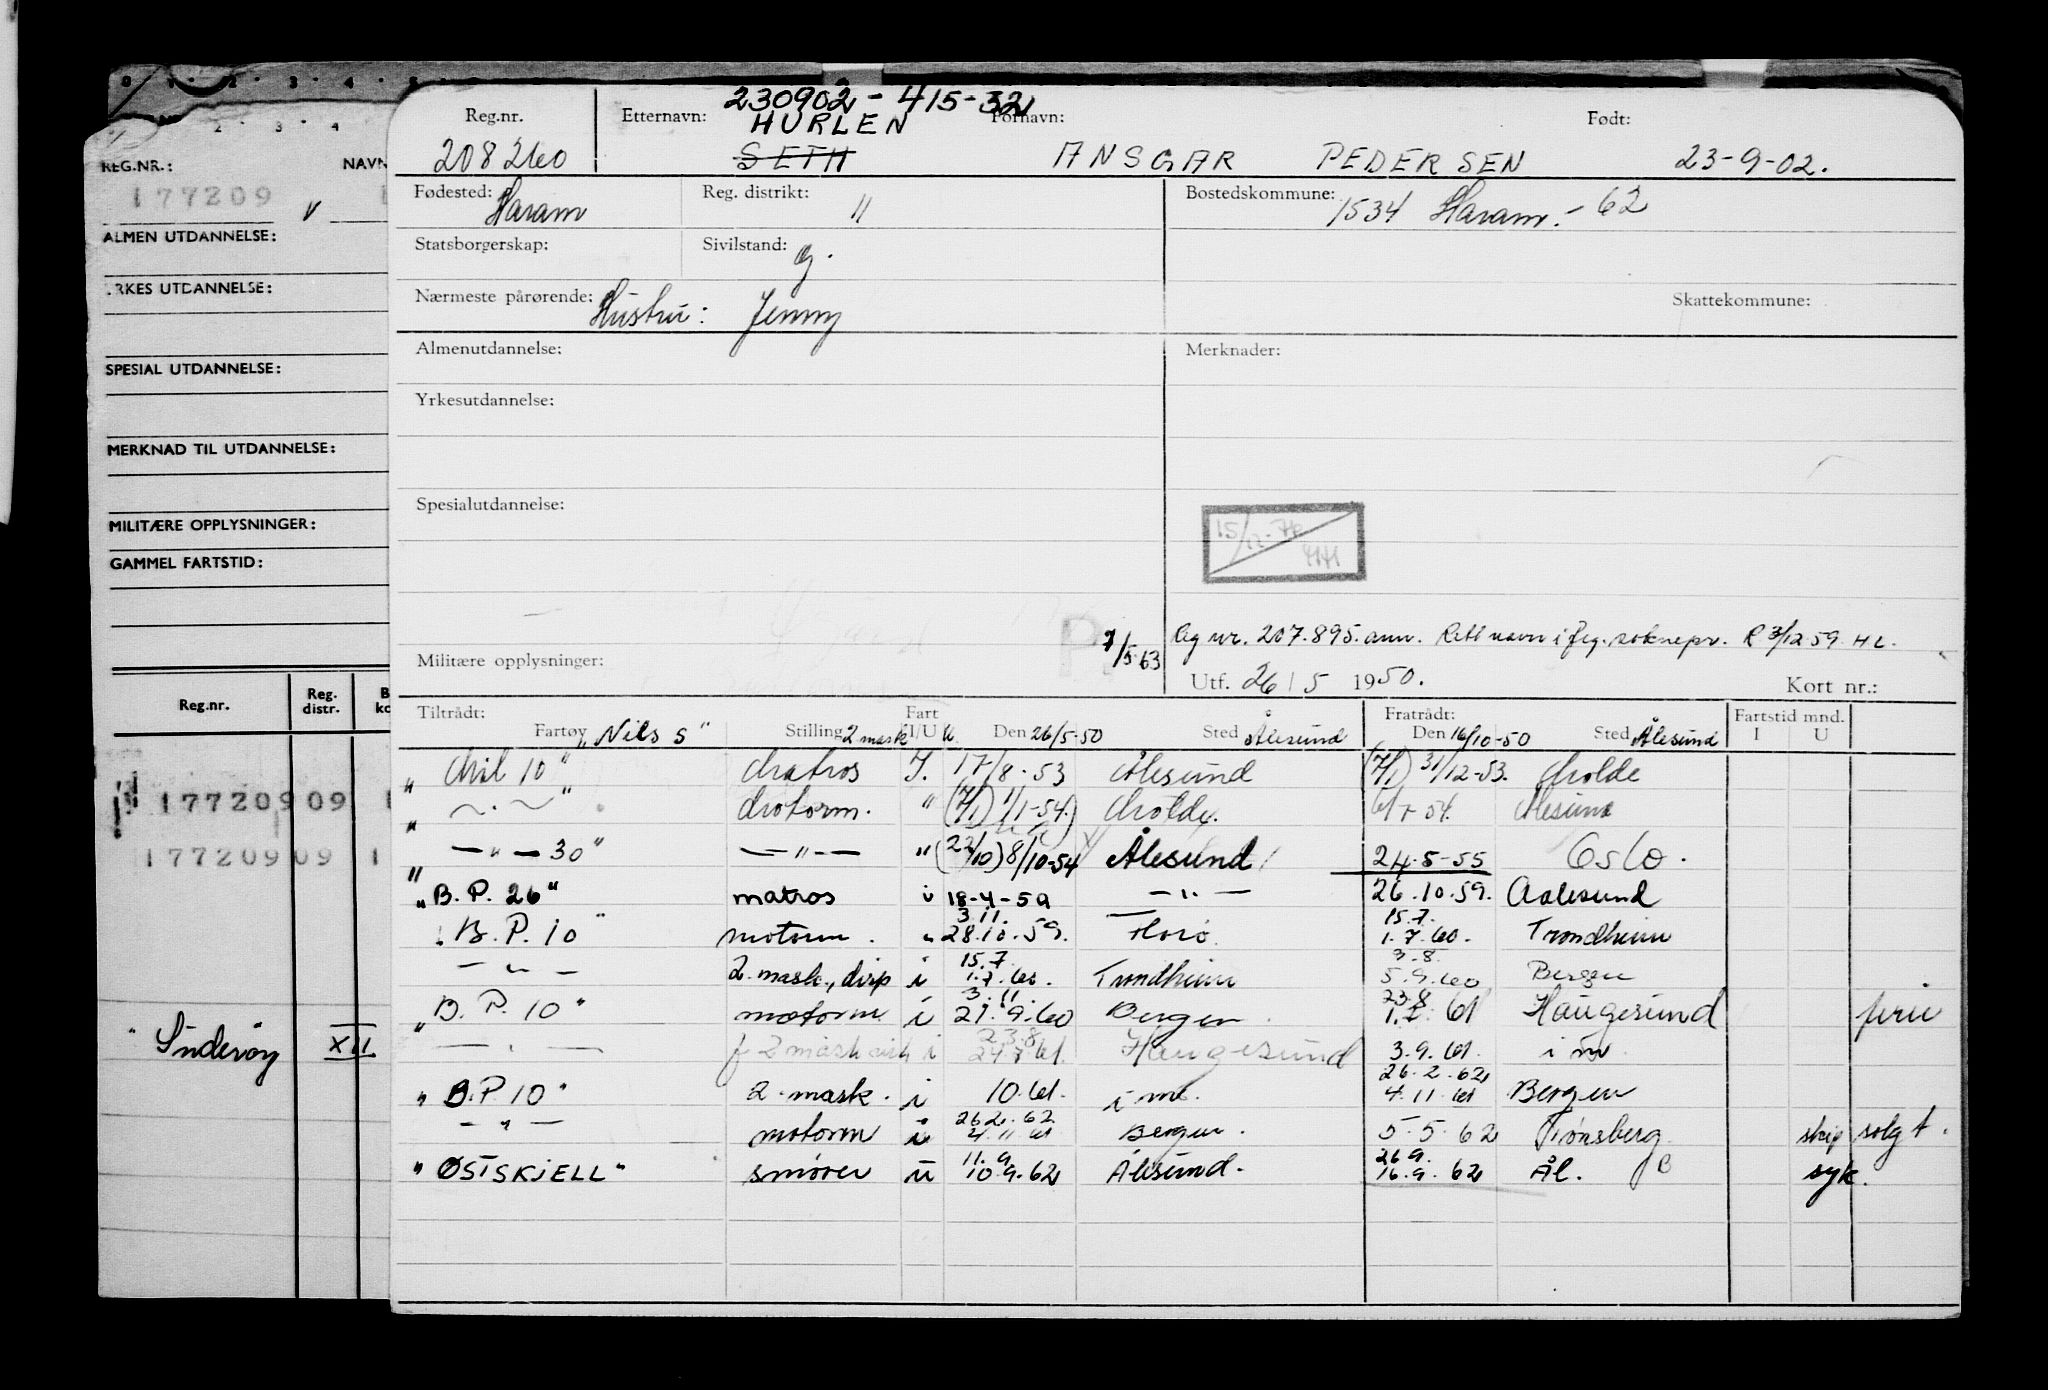 0 1 2 3 4
2 3 4
REG.NR.: NAVN
177209
ALMEN UTDANNELSE:
YRKES UTDANNELSE:
SPESIAL UTDANNELSE:
MERKNAD TIL UTDANNELSE:
MILITÆRE OPPLYSNINGER:
GAMMEL FARTSTID:
Reg.nr. Reg. distr.
177209 09
177209 09
"Inderøy XII
230902-415-32
Reg.nr. Etternavn: HURLEN Fornavn: Født:
208260 SETH ANSGAR PEDERSEN 23-9-02.
Fødested: Haram Reg. distrikt: 11 Bostedskommune: 1534 Haram - 62
Statsborgerskap: Sivilstand: g.
Nærmeste pårørende: Hustru: Jenny Skattekommune:
Almenutdannelse: Merknader:
Yrkesutdannelse:
Spesialutdannelse:
Reg nr. 207.895. ann. Rett navn i flg. soknepr. R 3/12.59. HL.
7/5.63
Militære opplysninger:
Utf. 26/5 1950. Kort nr.:
Tiltrådt: Fart Fratrådt: Fartstid mnd.
Fartøy "Nils S" Stilling 2 mask I/U U. Den 26/5-50 Sted Ålesund Den 16/10-50 Sted Ålesund I U
"Mil 10" Matros I. 17/8-53 Ålesund (7/1) 31/12-53. Molde
" — " — " Motorm. " (7/1) 1/1-54. Molde. 54. Ålesund
" —"— 30" —"— " (22/10) 8/10-54 Ålesund 24-5-55 Oslo.
"B.P. 26" matros i 18-4-59 —"— 26.10.59. Aalesund
"B.P. 10" motorm. " 3.11. 28.10.59. Florø 15.7. 1.7.60. Trondheim
—"— 2. mask., disp i 15.7. 1.7.60. Trondheim 3.8. 5.9.60 Bergen
"B.P. 10" motorm i 3.11 21.9.60 Bergen 23.8 61 Haugesund ferie
—"— 2 mask i 23.8. 24.7.61. Haugesund 3.9.61. i m.
"B.P. 10" 2. mask. i 10.61. i m. 26.2.62 4.11.61 Bergen
—"— motorm i 26.2.62 4.11.61 Bergen. 5.5.62 Tønsberg skip solgt.
"ØSTSKJELL" smører u 11.9 10.9.62 Ålesund. 26.9. 16.9.62 Ål. syk.